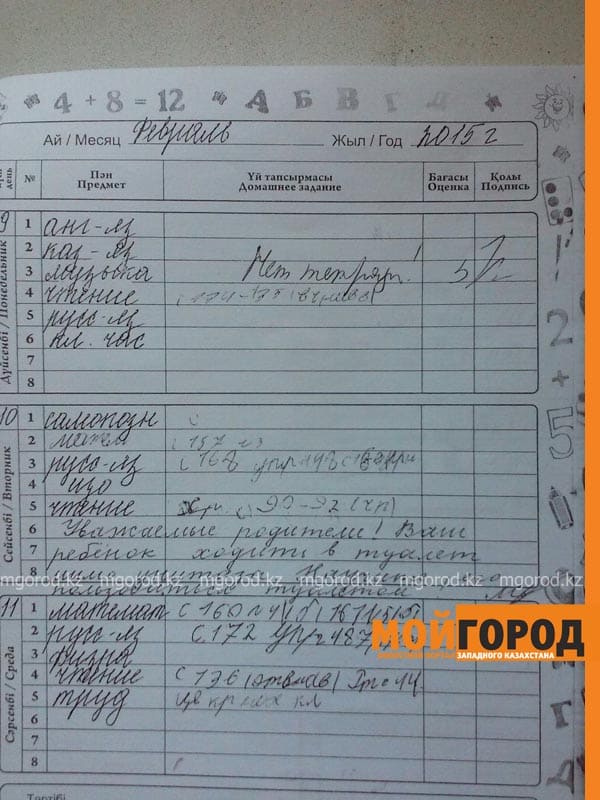 4 + 8 = 12 А Б В Г Д
Ай / Месяц Февраль Жыл / Год 2015 г
күні день № Пән Предмет Үй тапсырмасы Домашнее задание Бағасы Оценка Қолы Подпись
9 Дүйсенбі / Понедельник
1 анг-яз
2 каз-яз
3 музыка Нет тетради! 5
4 чтение с 174-175
5 русс-яз
6 кл. час
7
8
10 Сейсенбі / Вторник
1 самопозн с
2 матем с 157
3 русс-яз с 168 упр
4 изо
5 чтение с 90-92 (чп)
6 Уважаемые родители! Ваш
7 ребёнок ходит в туалет
8 мимо унитаза. Научите
пользоваться туалетом
mgorod.kz mgorod.kz mgorod.kz mgorod.kz mgorod.kz mgorod.kz
11 Сәрсенбі / Среда
1 математ с 160 №4
2 русс-яз с 172 упр 487
3 физра
4 чтение с 176
5 труд
6
7
8
МОЙ ГОРОД
ЗАПАДНОГО КАЗАХСТАНА
2 + 5
Тәртібі